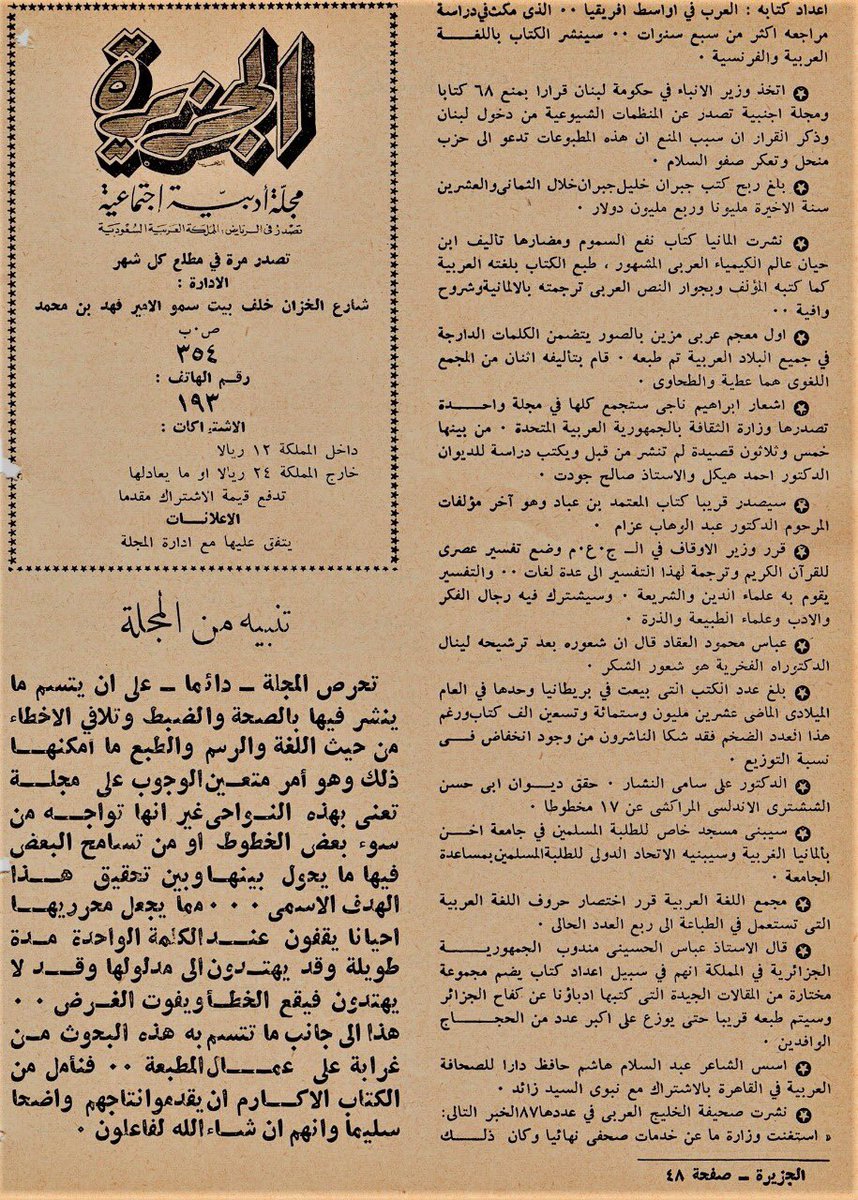 اعداد كتابه : العرب في اواسط افريقيا ٠٠ الذى مكث في دراسة
مراجعه اكثر من سبع سنوات ٠٠ سينشر الكتاب باللغة
العربية والفرنسية ٠
اتخذ وزير الانباء في حكومة لبنان قرارا بمنع ٦٨ كتابا
ومجلة اجنبية تصدر عن المنظمات الشيوعية من دخول لبنان
وذكر القرار ان سبب المنع ان هذه المطبوعات تدعو الى حزب
منحل وتعكر صفو السلام ٠
بلغ ربح كتب جبران خليل جبران خلال الثمانى والعشرين
سنة الاخيرة مليونا وربع مليون دولار ٠
نشرت المانيا كتاب نفع السموم ومضارها تأليف ابن
حيان عالم الكيمياء العربى المشهور ، طبع الكتاب بلغته العربية
كما كتبه المؤلف وبجوار النص العربى ترجمته بالالمانية وشروح
وافية ٠٠
اول معجم عربى مزين بالصور يتضمن الكلمات الدارجة
في جميع البلاد العربية تم طبعه ٠ قام بتأليفه اثنان من المجمع
اللغوى هما عطية والطحاوى ٠
اشعار ابراهيم ناجى ستجمع كلها في مجلة واحــدة
تصدرها وزارة الثقافة بالجمهورية العربية المتحدة ٠ من بينها
خمس وثلاثون قصيدة لم تنشر من قبل ويكتب دراسة للديوان
الدكتور احمد هيكل والاستاذ صالح جودت ٠
سيصدر قريبا كتاب المعتمد بن عباد وهو آخر مؤلفات
المرحوم الدكتور عبد الوهاب عزام ٠
قرر وزير الاوقاف في الـ ج٠ع٠م وضع تفسير عصرى
للقرآن الكريم وترجمة لهذا التفسير الى عدة لغات ٠٠ والتفسير
يقوم به علماء الدين والشريعة ٠ وسيشترك فيه رجال الفكر
والادب وعلماء الطبيعة والذرة ٠
عباس محمود العقاد قال ان شعوره بعد ترشيحه لينال
الدكتوراه الفخرية هو شعور الشكر ٠
بلغ عدد الكتب التى بيعت في بريطانيا وحدها في العام
الميلادى الماضى عشرين مليون وستمائة وتسعين الف كتاب ورغم
هذا العدد الضخم فقد شكا الناشرون من وجود انخفاض فــى
نسبة التوزيع ٠
الدكتور على سامى النشار ٠ حقق ديــوان ابى حسن
الششترى الاندلسى المراكشى عن ١٧ مخطوطا ٠
سيبنى مسجد خاص للطلبة المسلمين في جامعة اخــن
بألمانيا الغربية وسيبنيه الاتحاد الدولى للطلبة المسلمين بمساعدة
الجامعة ٠
مجمع اللغة العربية قرر اختصار حروف اللغة العربية
التى تستعمل في الطباعة الى ربع العدد الحالى ٠
قال الاستاذ عباس الحسينى مندوب الجمهوريــة
الجزائرية في المملكة انهم في سبيل اعداد كتاب يضم مجموعة
مختارة من المقالات الجيدة التى كتبها ادباؤنا عن كفاح الجزائر
وسيتم طبعه قريبا حتى يوزع على اكبر عدد من الحجــاج
الوافدين ٠
اسس الشاعر عبد السلام هاشم حافظ دارا للصحافة
العربية في القاهرة بالاشتراك مع نبوى السيد زائد ٠
نشرت صحيفة الخليج العربى في عددها ٨٧ الخبر التالى:
« استغنت وزارة ما عن خدمات صحفى نهائيا وكان ذلــك
الجزيرة
مجلة أدبية إجتماعية
تصدر في الرياض، المملكة العربية السعودية
تصدر مرة في مطلع كل شهر
الادارة :
شارع الخزان خلف بيت سمو الامير فهد بن محمد
ص٠ب
٣٥٤
رقم الهاتف :
١٩٣
الاشتراكات :
داخل المملكة ١٢ ريالا
خارج المملكة ٢٤ ريالا او ما يعادلها
تدفع قيمة الاشتراك مقدما
الاعلانــات
يتفق عليها مع ادارة المجلة
تنبيه من المجلة
تحرص المجلة ــ دائما ــ على ان يتسم ما
ينشر فيها بالصحة والضبط وتلافي الاخطاء
من حيث اللغة والرسم والطبع ما أمكنهــا
ذلك وهو أمر متعين الوجوب على مجلــة
تعنى بهذه النــواحى غير انها تواجــه من
سوء بعض الخطوط أو من تسامح البعض
فيها ما يحول بينهــا وبين تحقيق هــذا
الهدف الاسمى ٠٠٠ مما يجعل محرريهــا
احيانا يقفون عنــد الكلمة الواحدة مــدة
طويلة وقد يهتــدون الى مدلولها وقــد لا
يهتدون فيقع الخطــأ ويفوت الغــرض ٠٠
هذا الى جانب ما تتسم به هذه البحوث مــن
غرابة على عمــال المطبعة ٠٠ فنأمل من
الكتاب الاكــارم ان يقدموا نتاجهم واضحا
سليما وانهم ان شــاء الله لفاعلون ٠
الجزيرة ــ صفحة ٤٨